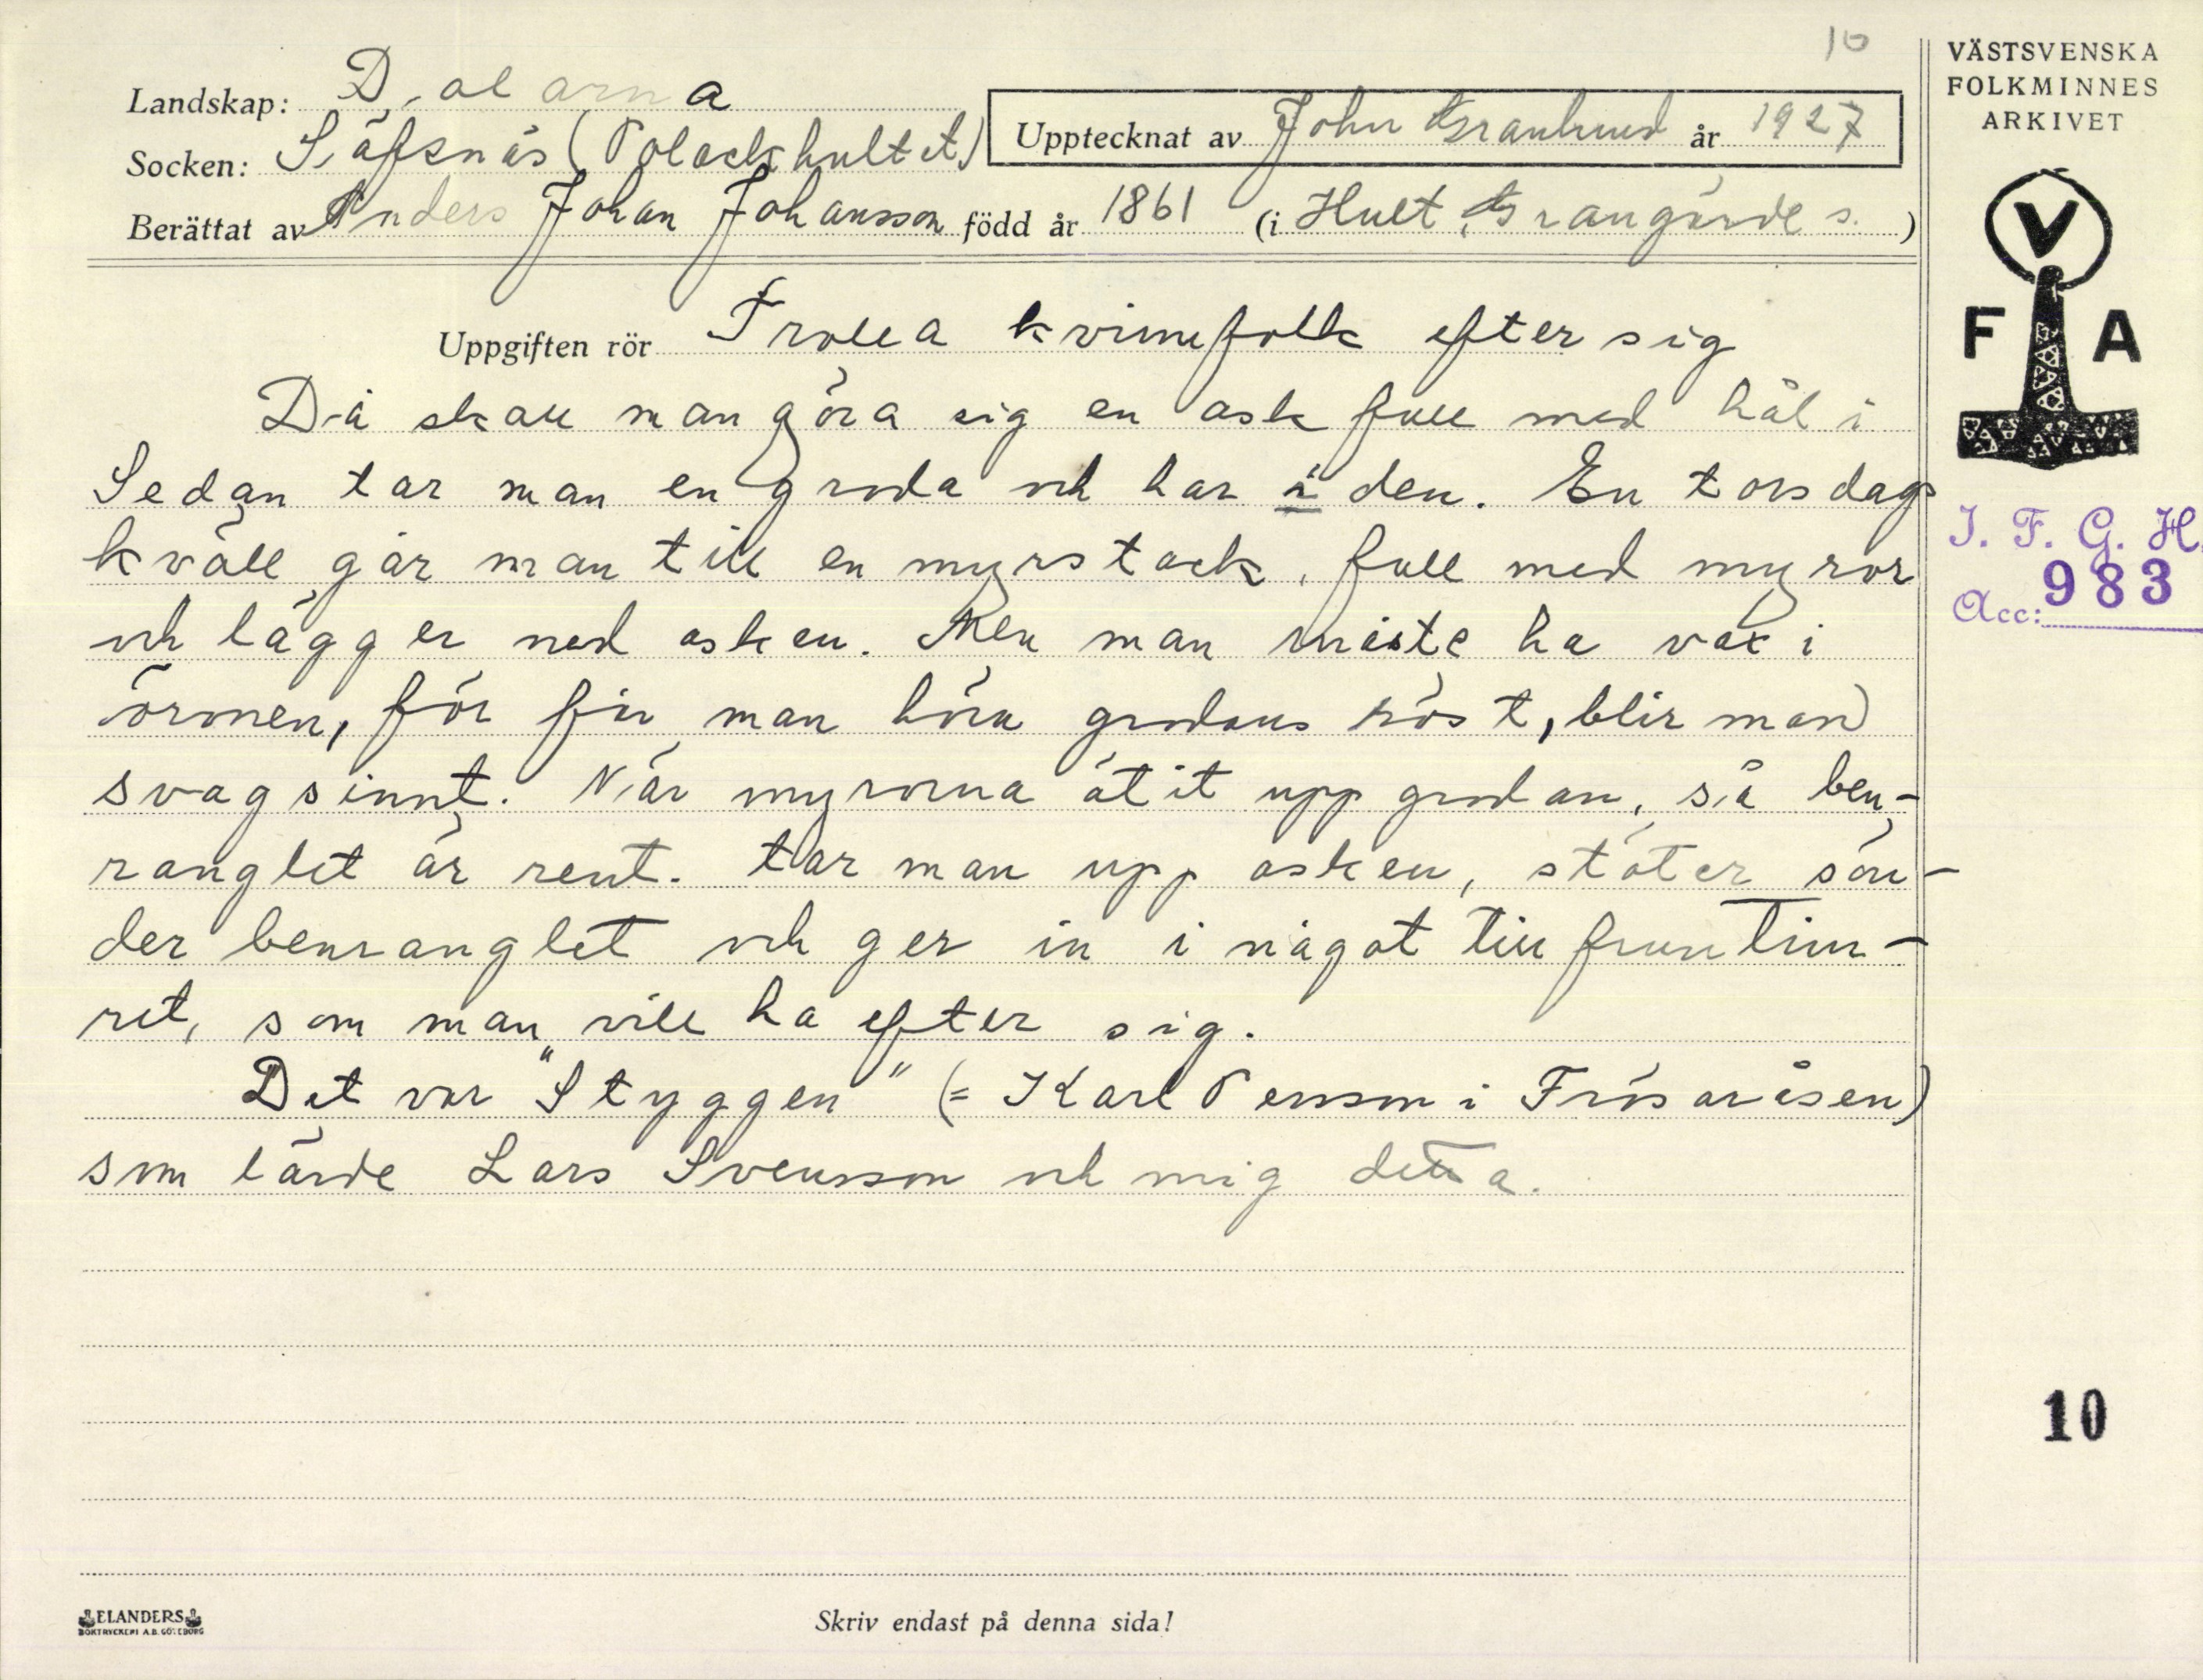 10
VÄSTSVENSKA
FOLKMINNES
ARKIVET
Landskap: Dalarna
Socken: Säfsnäs (Polackhultet)
Upptecknat av John Granlund år 1927
Berättat av Anders Johan Johansson född år 1861 (i Hult, Grangärde s. )
V
F A
Uppgiften rör Trolla kvinnfolk efter sig
Då skall man göra sig en ask full med hål i
Sedan tar man en groda och har i den. En torsdags
kväll går man till en myrstack, full med myror
och lägger ned asken. Men man måste ha vax i
öronen, för får man höra grodans röst, blir man
svagsinnt. När myrorna ätit upp grodan, så ben-
ranglet är rent. tar man upp asken, stöter sön-
der benranglet och ger in i något till fruntim-
ret, som man vill ha efter sig.
Det var "Styggen" (= Karl Persson i Frösaråsen)
som lärde Lars Svensson och mig detta.
I. F. G. H.
Acc: 983
10
ELANDERS
BOKTRYCKERI A.B. GÖTEBORG
Skriv endast på denna sida!